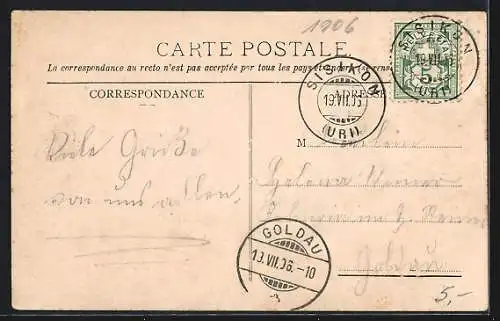 1906
CARTE POSTALE.
La correspondance au recto n'est pas acceptée par tous les pays
CORRESPONDANCE
ADRESSE
SISIKON
19.VII.06
(URI)
SISIKON
19.VII.06
(URI)
HELVETIA
5
M
Viele Grüße
von uns allen.
Fräulein
Helena Werner
Goldau
GOLDAU
19.VII.06.-10
5,-